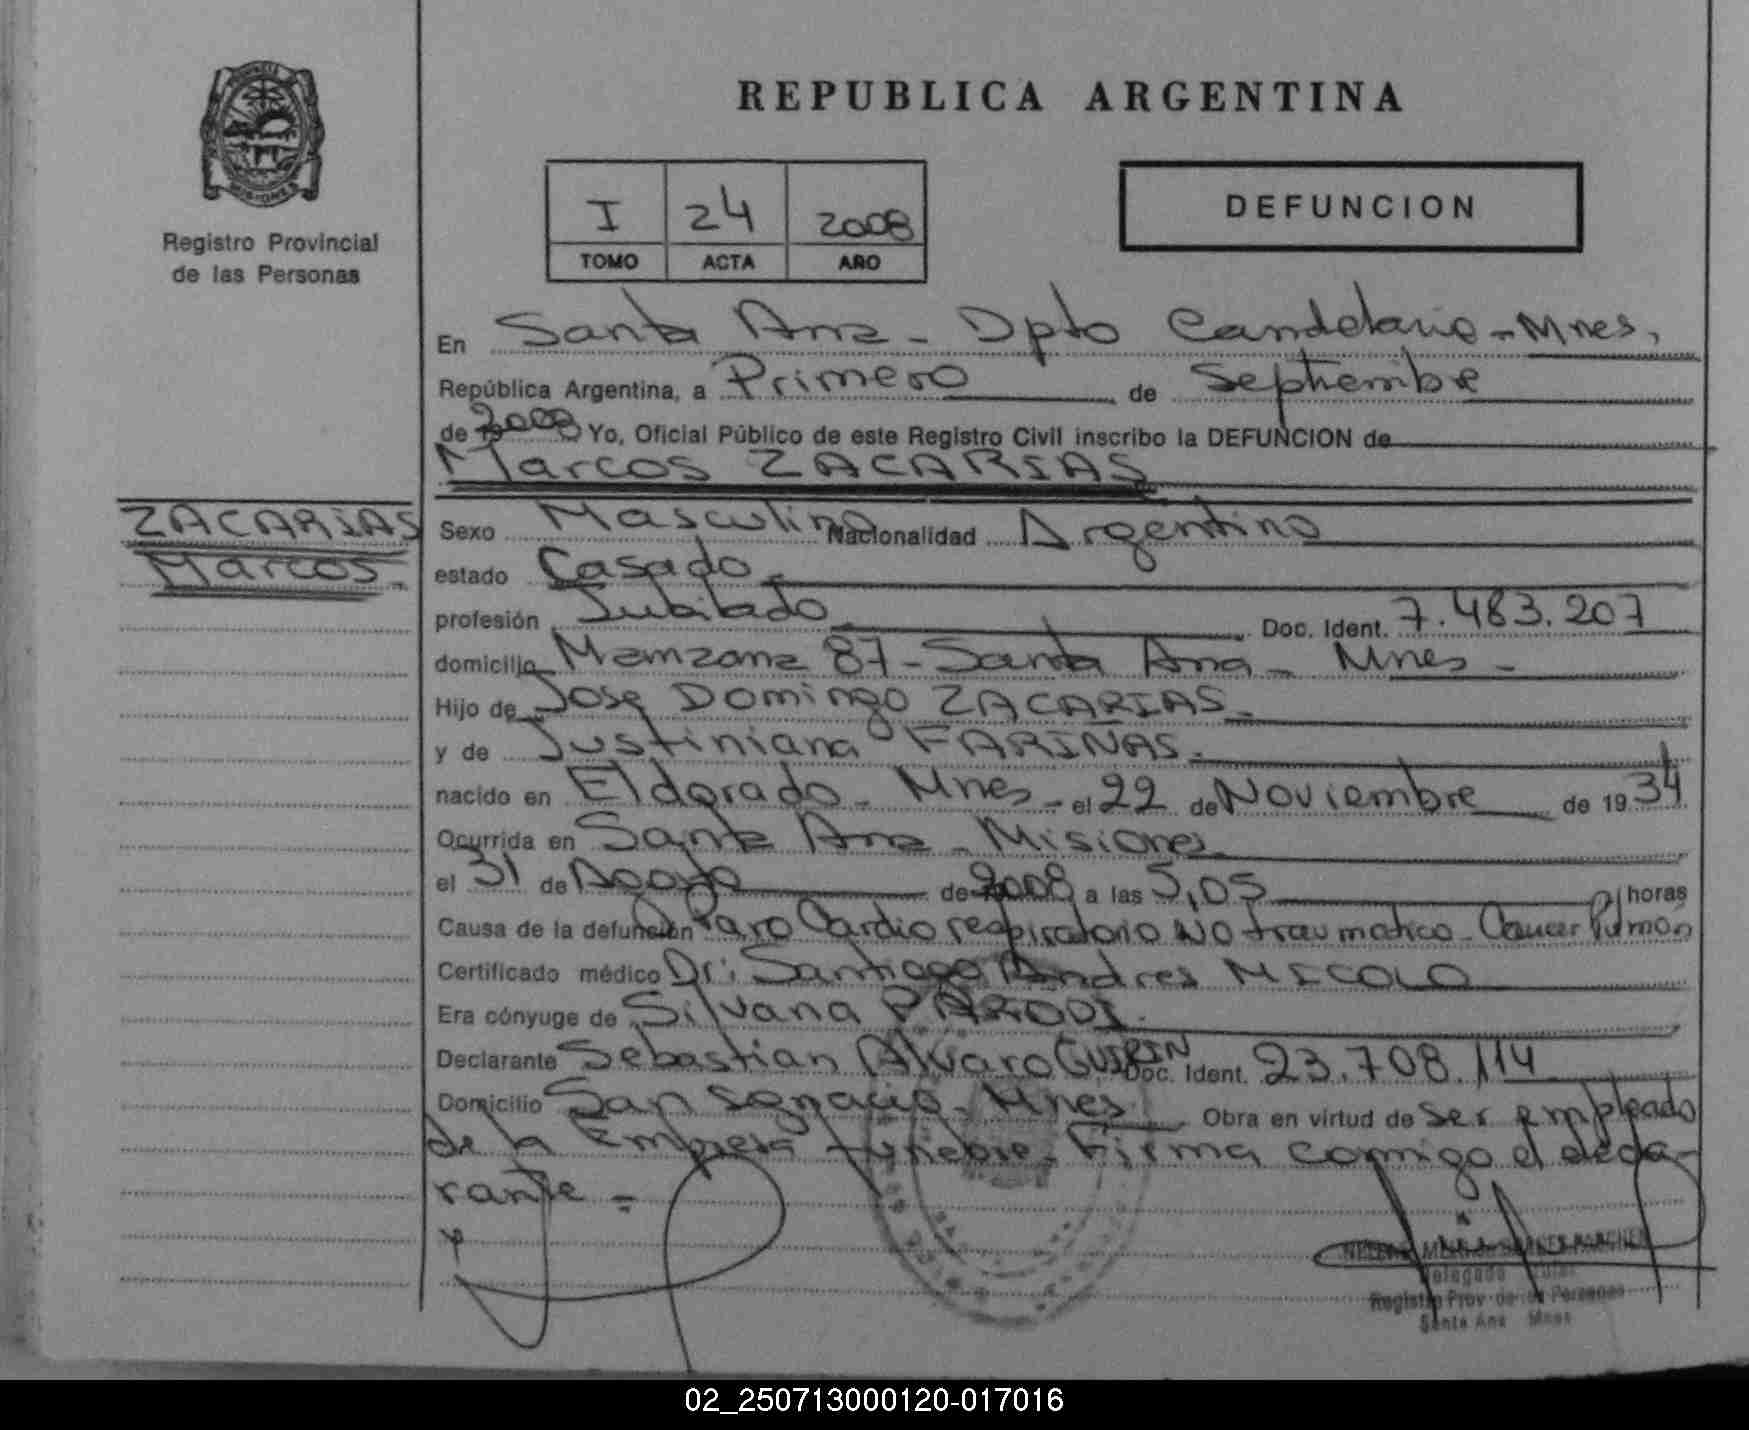 REPUBLICA ARGENTINA
PROVINCIA
MISIONES
Registro Provincial
de las Personas
I 24 2008
TOMO ACTA AÑO
DEFUNCION
En Santa Ana - Dpto Candelaria - Mnes.
República Argentina, a Primero de Septiembre
de 2008 Yo, Oficial Público de este Registro Civil inscribo la DEFUNCION de
Marcos ZACARIAS
ZACARIAS
Marcos.
Sexo Masculino Nacionalidad Argentino
estado Casado -
profesión Jubilado Doc. Ident. 7.483.207
domicilio Manzana 87 - Santa Ana - Mnes -
Hijo de Jose Domingo ZACARIAS -
y de Justiniana FARINAS.
nacido en Eldorado - Mnes - el 22 de Noviembre de 1934
Ocurrida en Santa Ana - Misiones
el 31 de Agosto de 2008 a las 5,05 horas
Causa de la defunción Paro Cardio respiratorio NO traumatico - Cancer Pulmón
Certificado médico Dr: Santiago Andres MICOLO
Era cónyuge de Silvana PARODI.
Declarante Sebastian Alvaro Doc. Ident. 23.708.114
Domicilio San Ignacio - Mnes Obra en virtud de ser empleado
de la Empresa funebre. Firma conmigo el decla-
rante =
Delegada Titular
Registro Prov. de las Personas
Santa Ana Mnes
02_250713000120-017016